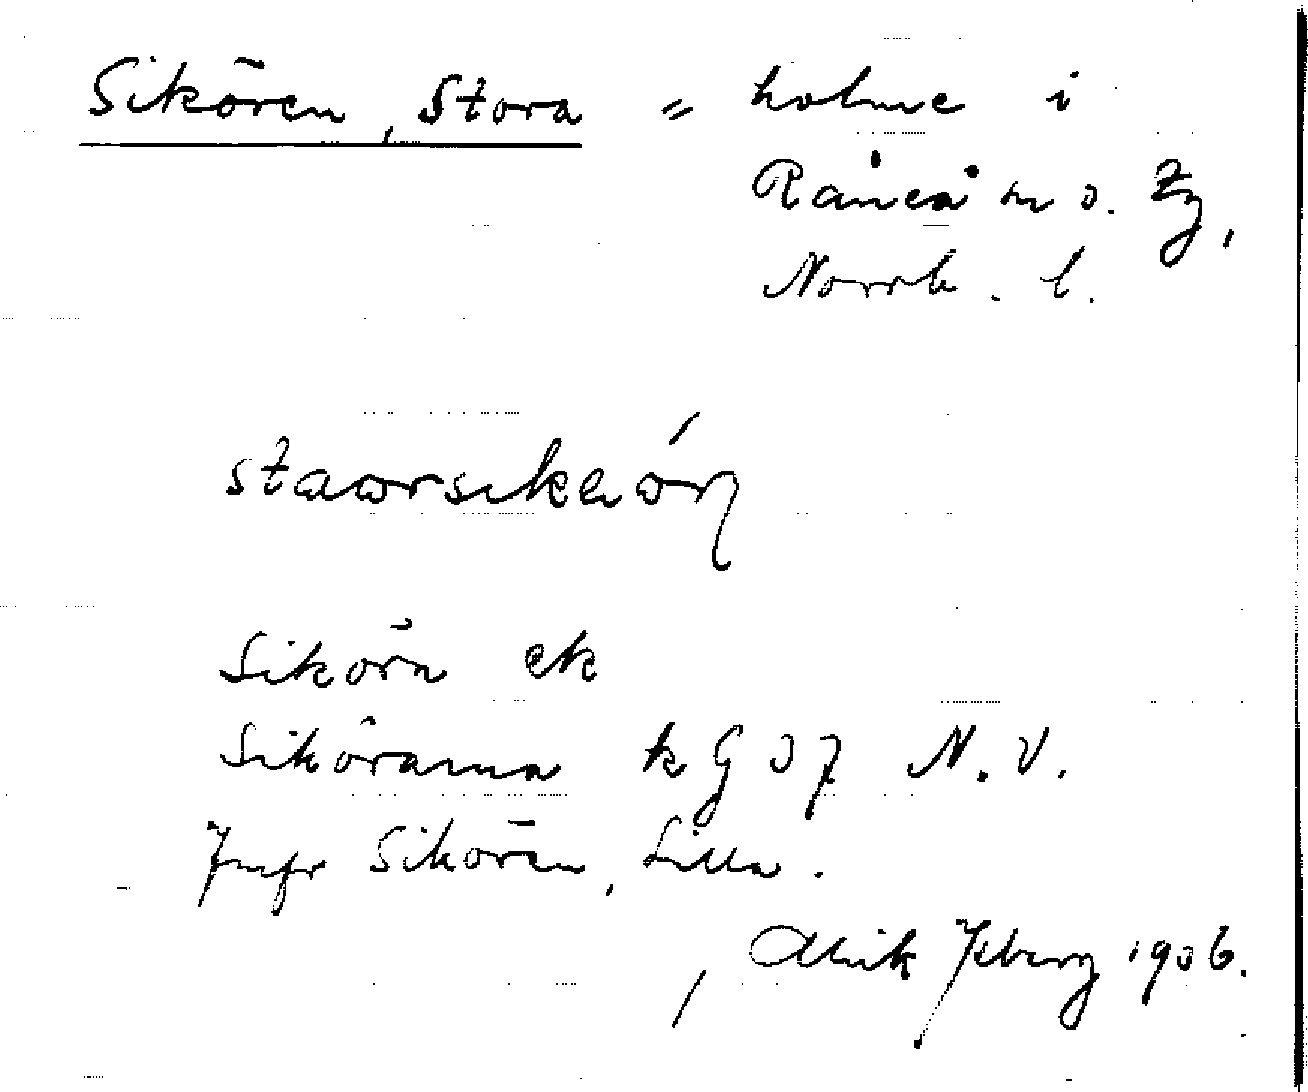 Sikören, Stora = holme i
Råneå sn o. tg,
Norrb. l.
Sikörn ek
Sikörarna k G 37 N. V.
Jmfr Sikören, Lilla.
Alrik Ysberg 1906.